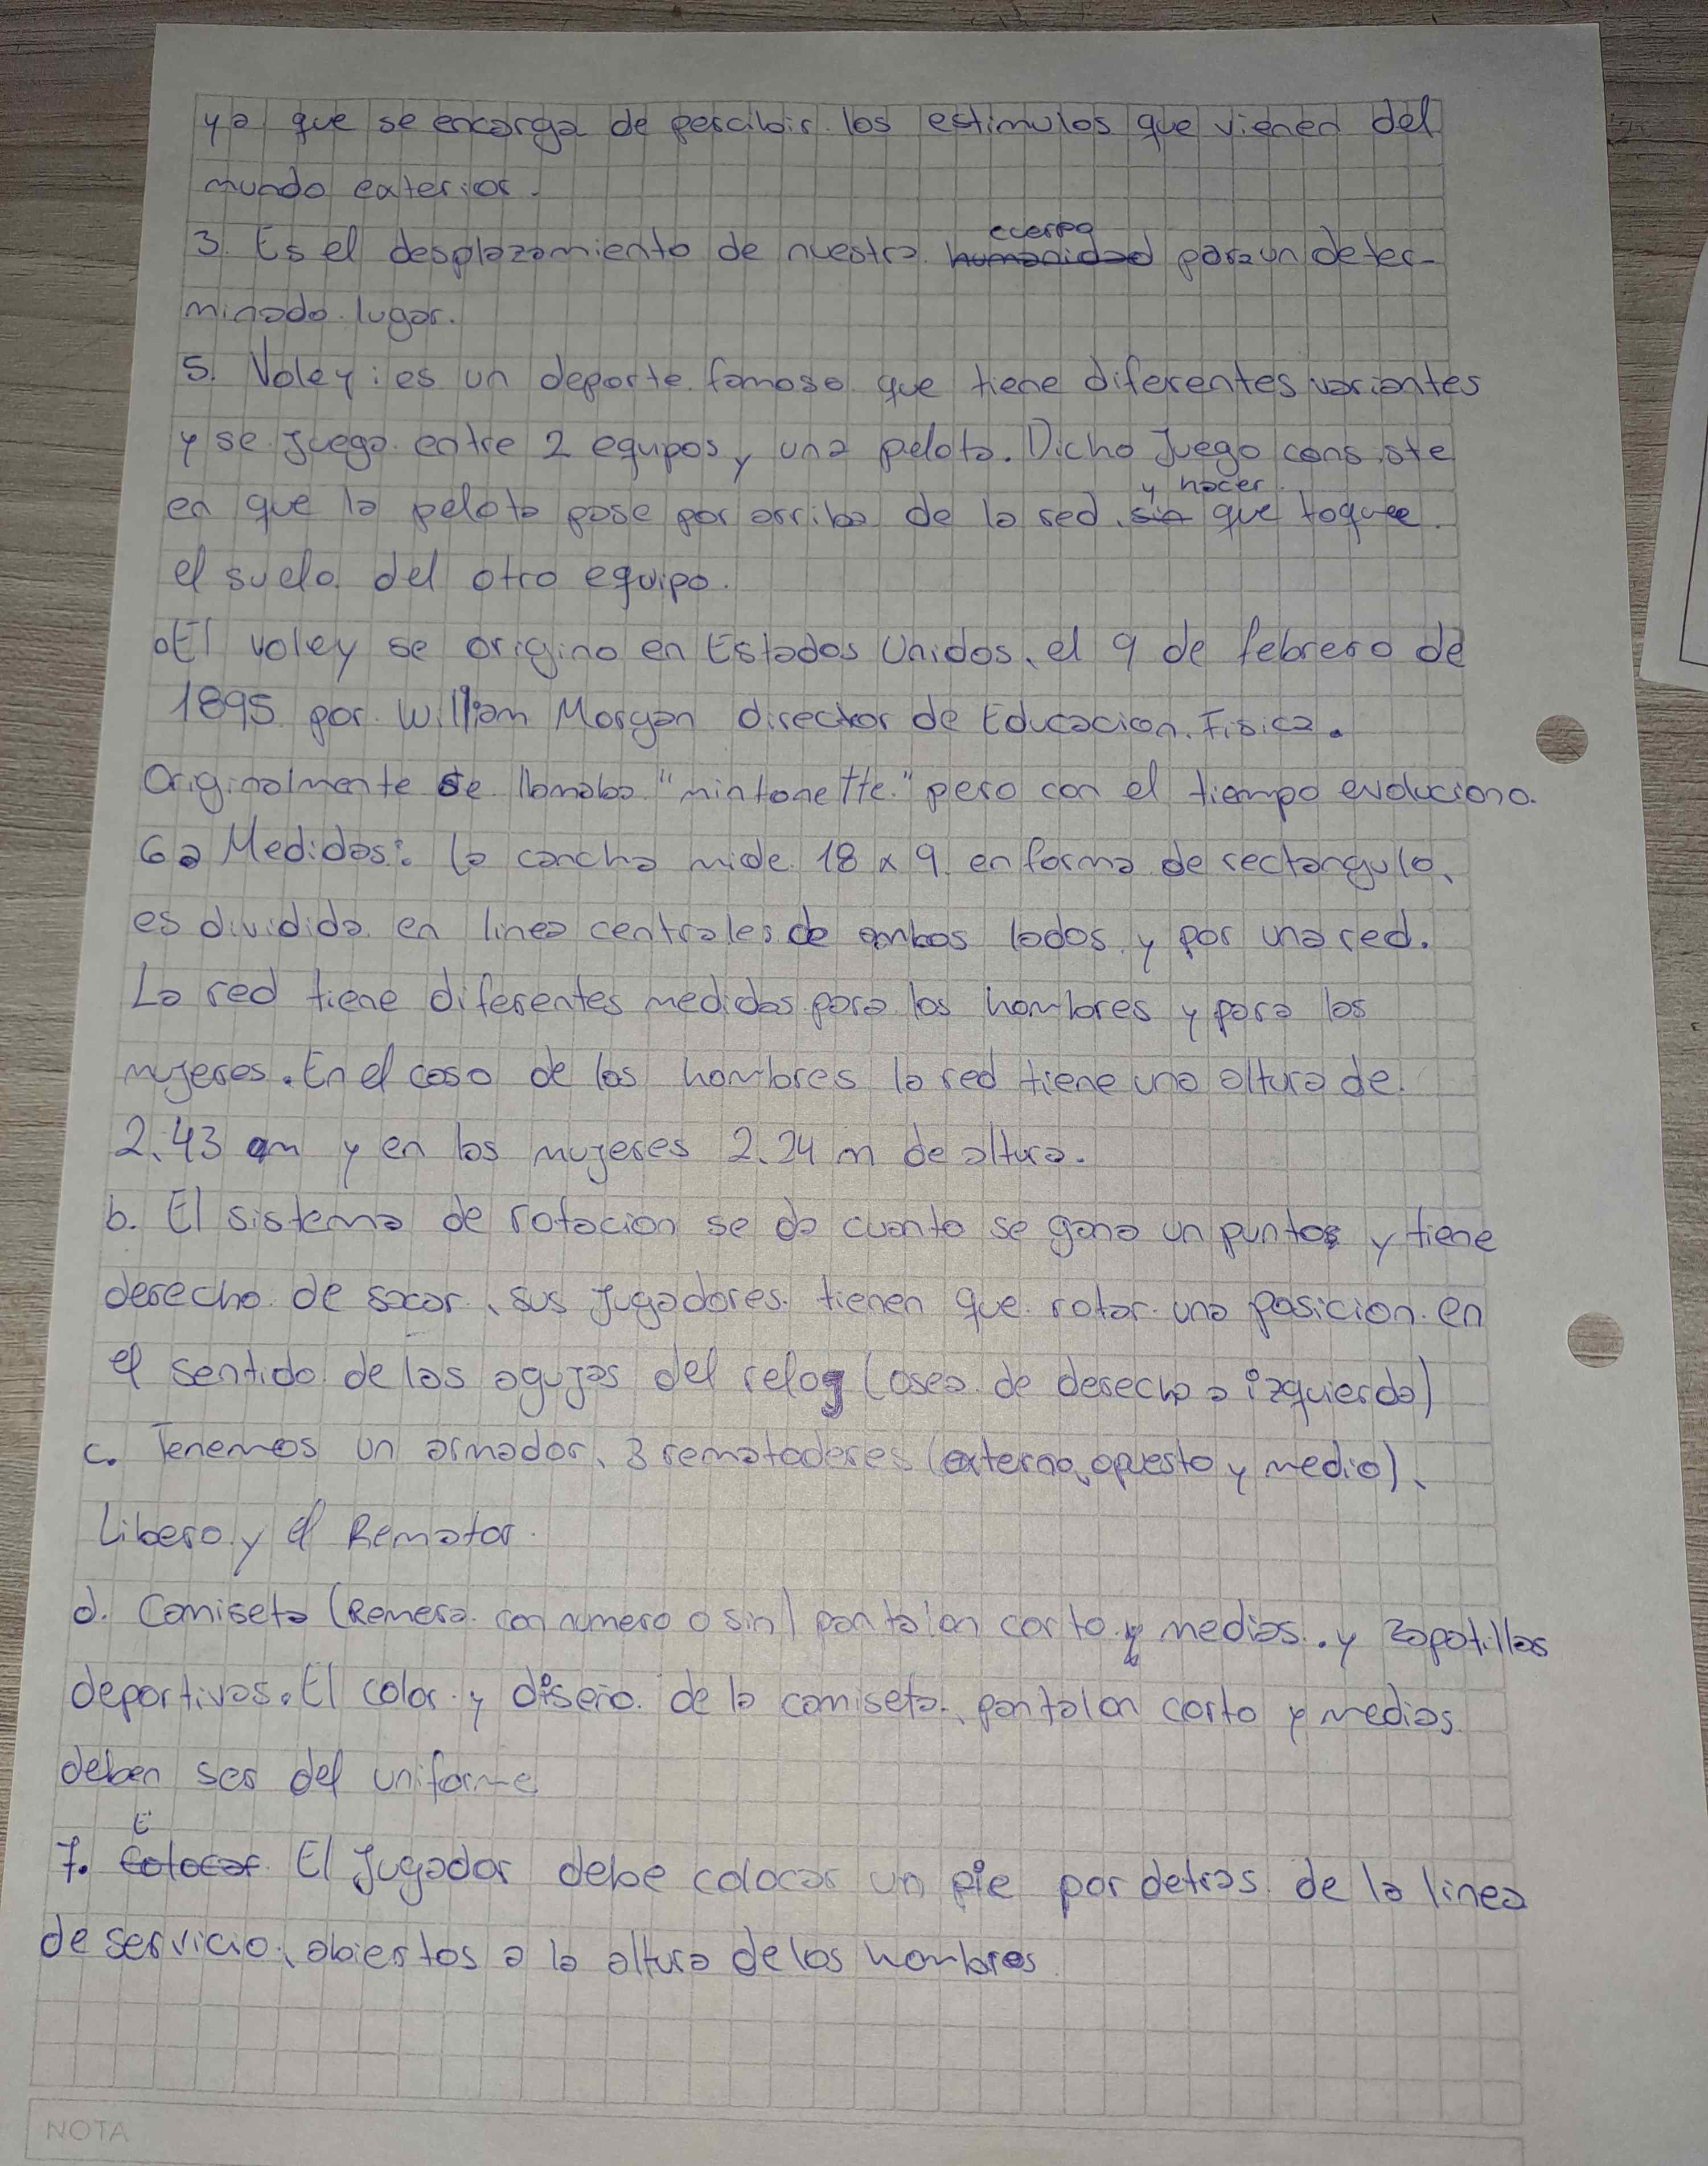 ya que se encarga de percibir los estimulos que vienen del
mundo exterior.
3. Es el desplazamiento de nuestra humanidad cuerpo para un deter-
minado lugar.
5. Voley: es un deporte famoso que tiene diferentes variantes
y se juega entre 2 equipos y una pelota. Dicho Juego consiste
en que la pelota pase por arriba de la red, sin y hacer que toque
el suelo del otro equipo.
El voley se origino en Estados Unidos, el 9 de febrero de
1895 por William Morgan director de Educacion Fisica.
Originalmente se llamaba "mintonette" pero con el tiempo evoluciono.
6a Medidas: La cancha mide 18 x 9 en forma de rectangulo,
es dividida en linea centrales de ambos lados y por una red.
La red tiene diferentes medidas para los hombres y para las
mujeres. En el caso de los hombres la red tiene una altura de
2,43 m y en las mujeres 2,24 m de altura.
b. El sistema de rotacion se da cuanto se gana un punto y tiene
derecho de sacar, sus jugadores tienen que rotar una posicion en
el sentido de las agujas del relog (osea de derecha a izquierda)
c. Tenemos un armador, 3 rematadores (externo, opuesto y medio),
Libero y el Rematar.
d. Camiseta (Remera con numero o sin) pantalon corto y medias. y zapatillas
deportivas. El color y diseño de la camiseta, pantalon corto y medias
deben ser del uniforme
7. Colocar El Jugador debe colocar un pie por detras de la linea
de servicio, abiertos a la altura de los hombres
NOTA